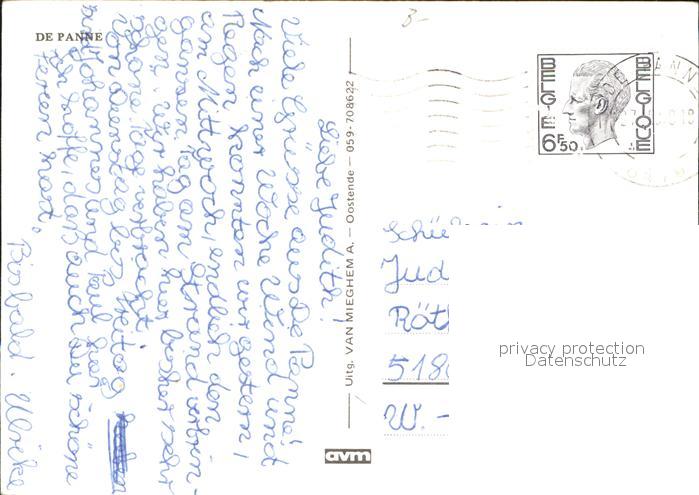 DE PANNE
3-
Liebe Judith!
Viele Grüsse aus De Panne!
Nach einer Woche Wind und
Regen konnten wir gestern,
am Mittwoch, endlich den
ganzen Tag am Strand verbrin-
gen. Wir haben hier bisher sehr
schöne Tage verbracht.
Von Dienstag bis Freitag
Johannes und Paul hier
Ich hoffe, daß auch du schöne
Ferien hast.
Bis bald. Ulrike
Uitg. VAN MIEGHEM A. – Oostende – 059-708622
avm
BELGIE
BELGIQUE
6F50
Jud
Röt
518
W. -
privacy protection
Datenschutz